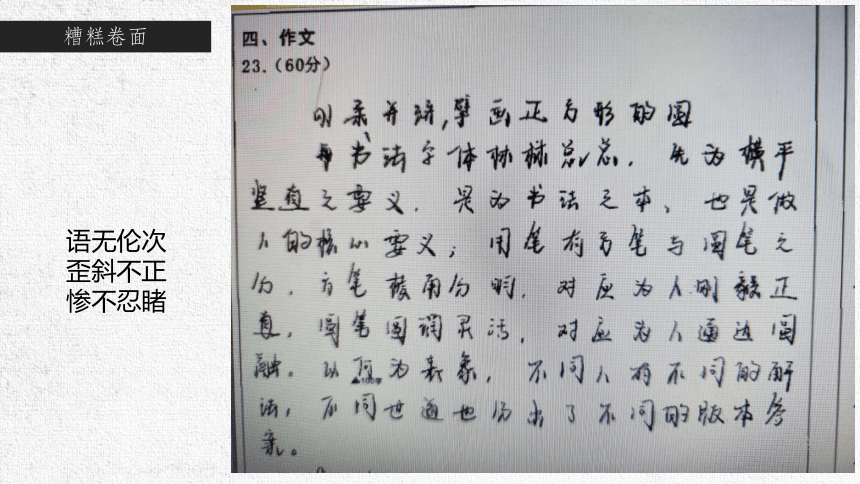 糟糕卷面
语无伦次
歪斜不正
惨不忍睹
四、作文
23.(60分)
刚柔并济,擘画正方形的圆
书法字体林林总总,先为横平
竖直之要义,是为书法之本,也是做
人的核心要义;用笔有方笔与圆笔之
分,方笔棱角分明,对应为人刚毅正
直,圆笔圆润灵活,对应为人通达圆
融。以历为表象,不同人有不同的解
法,不同世道也仿出了不同的版本答
案。